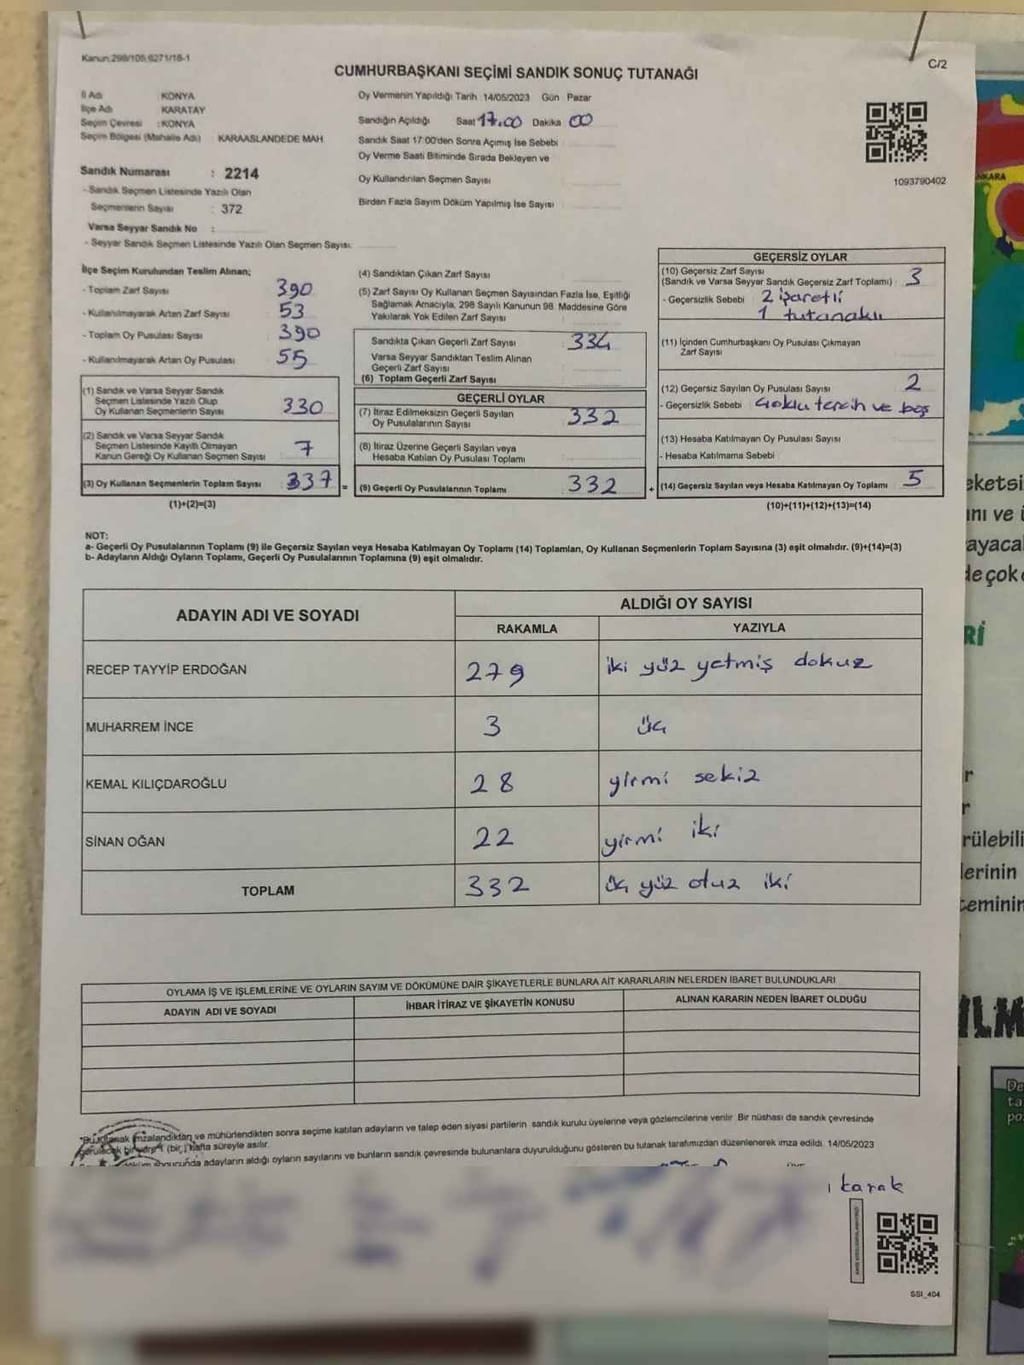 Kanun:298/105,6271/18-1
C/2
CUMHURBAŞKANI SEÇİMİ SANDIK SONUÇ TUTANAĞI
İl Adı : KONYA
İlçe Adı : KARATAY
Seçim Çevresi : KONYA
Seçim Bölgesi (Mahalle Adı) : KARAASLANDEDE MAH
Sandık Numarası : 2214
- Sandık Seçmen Listesinde Yazılı Olan
Seçmenlerin Sayısı : 372
Varsa Seyyar Sandık No :
- Seyyar Sandık Seçmen Listesinde Yazılı Olan Seçmen Sayısı:
Oy Vermenin Yapıldığı Tarih 14/05/2023 Gün Pazar
Sandığın Açıldığı Saat 17.00 Dakika 00
Sandık Saat 17:00'den Sonra Açımış İse Sebebi
Oy Verme Saati Bitiminde Sırada Bekleyen ve
Oy Kullandırılan Seçmen Sayısı
Birden Fazla Sayım Döküm Yapılmış İse Sayısı
1093790402
İlçe Seçim Kurulundan Teslim Alınan;
- Toplam Zarf Sayısı 390
- Kullanılmayarak Artan Zarf Sayısı 53
- Toplam Oy Pusulası Sayısı 390
- Kullanılmayarak Artan Oy Pusulası 55
(1) Sandık ve Varsa Seyyar Sandık
Seçmen Listesinde Yazılı Olup
Oy Kullanan Seçmenlerin Sayısı 330
(2) Sandık ve Varsa Seyyar Sandık
Seçmen Listesinde Kayıtlı Olmayan
Kanun Gereği Oy Kullanan Seçmen Sayısı 7
(3) Oy Kullanan Seçmenlerin Toplam Sayısı 337 =
(1)+(2)=(3)
(4) Sandıktan Çıkan Zarf Sayısı
(5) Zarf Sayısı Oy Kullanan Seçmen Sayısından Fazla İse, Eşitliği
Sağlamak Amacıyla, 298 Sayılı Kanunun 98. Maddesine Göre
Yakılarak Yok Edilen Zarf Sayısı
Sandıkta Çıkan Geçerli Zarf Sayısı 334
Varsa Seyyar Sandıktan Teslim Alınan
Geçerli Zarf Sayısı
(6) Toplam Geçerli Zarf Sayısı
GEÇERLİ OYLAR
(7) İtiraz Edilmeksizin Geçerli Sayılan
Oy Pusulalarının Sayısı 332
(8) İtiraz Üzerine Geçerli Sayılan veya
Hesaba Katılan Oy Pusulası Toplamı
(9) Geçerli Oy Pusulalarının Toplamı 332 +
GEÇERSİZ OYLAR
(10) Geçersiz Zarf Sayısı
(Sandık ve Varsa Seyyar Sandık Geçersiz Zarf Toplamı) : 3
- Geçersizlik Sebebi 2 işaretli
1 tutanaklı
(11) İçinden Cumhurbaşkanı Oy Pusulası Çıkmayan
Zarf Sayısı
(12) Geçersiz Sayılan Oy Pusulası Sayısı 2
- Geçersizlik Sebebi çoklu tercih ve boş
(13) Hesaba Katılmayan Oy Pusulası Sayısı
- Hesaba Katılmama Sebebi
(14) Geçersiz Sayılan veya Hesaba Katılmayan Oy Toplamı 5
(10)+(11)+(12)+(13)=(14)
NOT:
a- Geçerli Oy Pusulalarının Toplamı (9) ile Geçersiz Sayılan veya Hesaba Katılmayan Oy Toplamı (14) Toplamları, Oy Kullanan Seçmenlerin Toplam Sayısına (3) eşit olmalıdır. (9)+(14)=(3)
b- Adayların Aldığı Oyların Toplamı, Geçerli Oy Pusulalarının Toplamına (9) eşit olmalıdır.
ADAYIN ADI VE SOYADI
ALDIĞI OY SAYISI
RAKAMLA YAZIYLA
RECEP TAYYİP ERDOĞAN 279 iki yüz yetmiş dokuz
MUHARREM İNCE 3 üç
KEMAL KILIÇDAROĞLU 28 yirmi sekiz
SİNAN OĞAN 22 yirmi iki
TOPLAM 332 üç yüz otuz iki
OYLAMA İŞ VE İŞLEMLERİNE VE OYLARIN SAYIM VE DÖKÜMÜNE DAİR ŞİKAYETLERLE BUNLARA AİT KARARLARIN NELERDEN İBARET BULUNDUKLARI
ADAYIN ADI VE SOYADI
İHBAR İTİRAZ VE ŞİKAYETİN KONUSU
ALINAN KARARIN NEDEN İBARET OLDUĞU
*Bu tutanak imzalandıktan ve mühürlendikten sonra seçime katılan adayların ve talep eden siyasi partilerin sandık kurulu üyelerine veya gözlemcilerine verilir. Bir nüshası da sandık çevresinde
görülecek bir yere 1 (bir) hafta süreyle asılır.
adayların aldığı oyların sayılarını ve bunların sandık çevresinde bulunanlara duyurulduğunu gösteren bu tutanak tarafımızdan düzenlenerek imza edildi. 14/05/2023
karak
SSI_404
ANKARA
eketsi
ını ve
ayacal
de çok
Rİ
rülebili
lerinin
teminin
İLM
De
ta
po